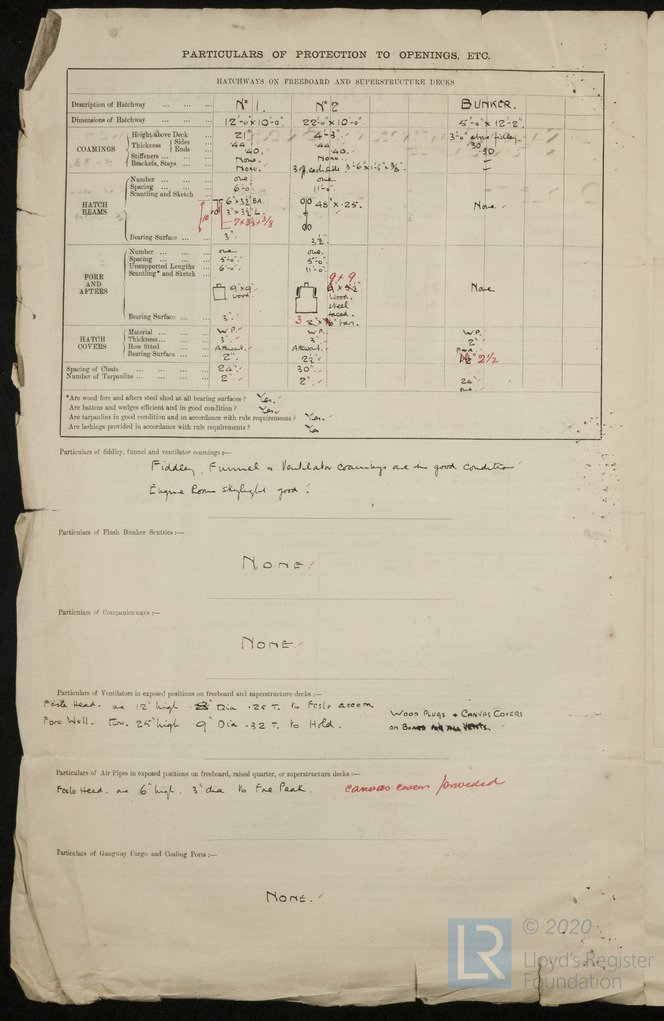 PARTICULARS OF PROTECTION TO OPENINGS, ETC.
HATCHWAYS ON FREEBOARD AND SUPERSTRUCTURE DECKS
Description of Hatchway ... ... ... Nº 1. Nº 2 BUNKER.
Dimensions of Hatchway ... ... ... 12'-0" x 10'-0". 22'-0" x 10'-0". 5'-0" x 12'-2"
COAMINGS
Height above Deck ... 21" 4'-3" 3'-0" above fiddley
Thickness Sides ... .44 .44 .30
Ends ... .40. .40. .30
Stiffeners ... ... ... None. None. —
Brackets, Stays ... ... None. 3 ff each side 3'-6" x 1'-6" x 3/8" —
HATCH BEAMS
Number ... ... ... one. one.
Spacing ... ... ... 6'-0". 11'-0".
Scantling and Sketch ... 6" x 3½" BA. 48" x .25". None.
3" x 3½" L.
7 x 3½ x 3/8
Bearing Surface ... ... 3". 3½.
FORE AND AFTERS
Number ... ... ... one. one.
Spacing ... ... ... 5'-0". 5'-0".
Unsupported Lengths ... 6'-0". 11'-0".
Scantling* and Sketch ... 9" x 9" wood. 9 x 9 Wood. steel faced. None
Bearing Surface ... ... 3". 3 bars.
HATCH COVERS
Material ... ... ... W.P. W.P. W.P.
Thickness... ... ... 3". 3". 2"
How fitted ... ... Athwart. Athwart.
Bearing Surface ... ... 2". 2½". 2½
Spacing of Cleats ... ... ... ... 24". 30". 24"
Number of Tarpaulins ... ... ... ... 2". 2". one.
*Are wood fore and afters steel shod at all bearing surfaces? Yes.
Are battens and wedges efficient and in good condition? Yes.
Are tarpaulins in good condition and in accordance with rule requirements? Yes.
Are lashings provided in accordance with rule requirements? Yes
Particulars of fiddley, funnel and ventilator coamings :—
Fiddley, Funnel & Ventilator coamings are in good condition
Engine Room skylight good.
Particulars of Flush Bunker Scuttles :—
NONE.
Particulars of Companionways :—
NONE.
Particulars of Ventilators in exposed positions on freeboard and superstructure decks :—
Fo'sle Head. one 12" high. 8" Dia .25 T. to Fo'sle accom.
Fore Well. Two. 25" high. 9" Dia .32 T. to Hold.
WOOD PLUGS & CANVAS COVERS
ON BOARD FOR ALL VENTS.
Particulars of Air Pipes in exposed positions on freeboard, raised quarter, or superstructure decks :—
Fo'sle Head. one 6" high. 3" dia to Fore Peak. canvas covers provided
Particulars of Gangway Cargo and Coaling Ports :—
NONE.
LR
© 2020
Lloyd's Register
Foundation